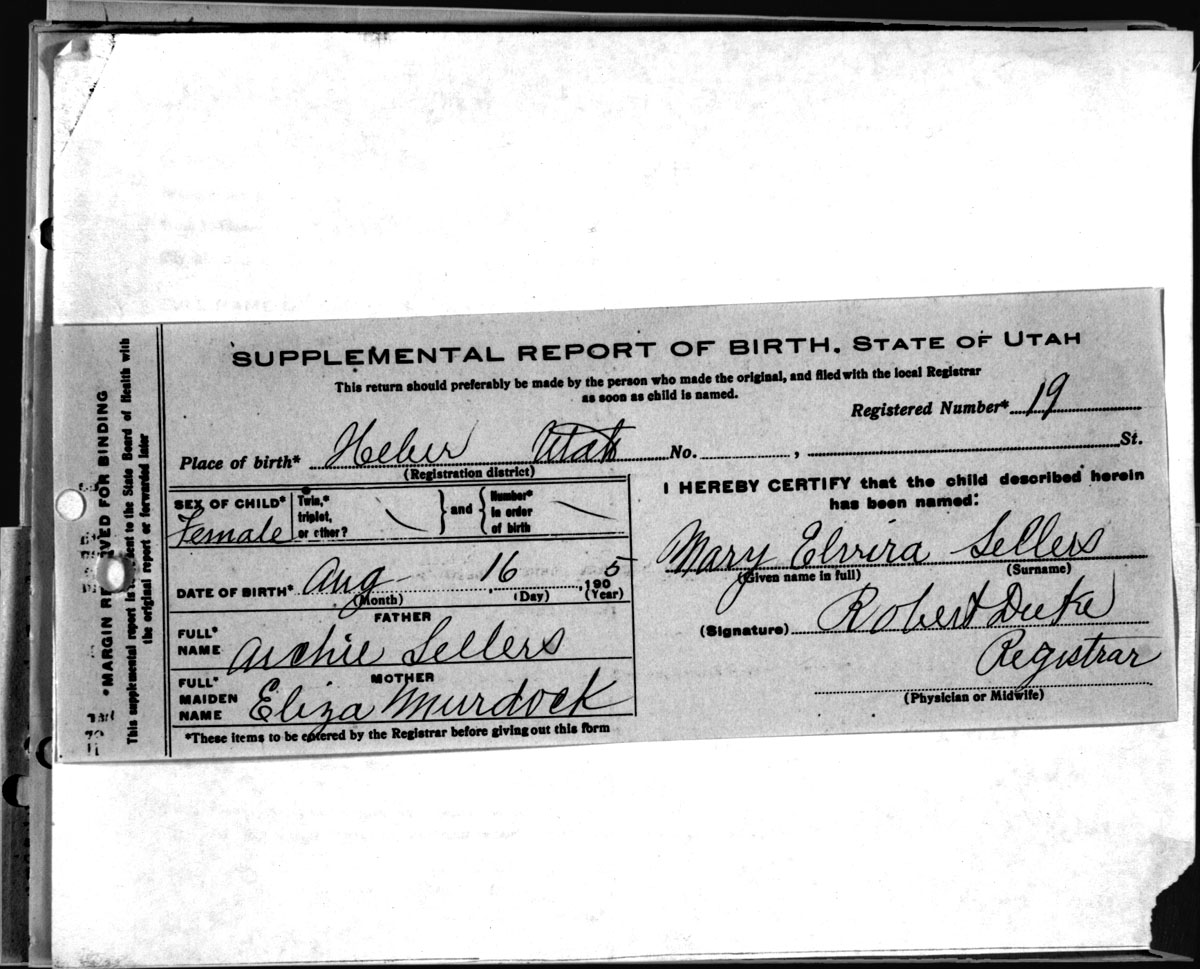 SUPPLEMENTAL REPORT OF BIRTH. STATE OF UTAH
This return should preferably be made by the person who made the original, and filed with the local Registrar
as soon as child is named.
Registered Number* 19
Place of birth* Heber Utah No. , St.
(Registration district)
SEX OF CHILD*
Female
Twin,*
triplet,
or other?
} and {
Number*
in order
of birth
DATE OF BIRTH* Aug 16, 1905
(Month) (Day) (Year)
FATHER
FULL*
NAME Archie Sellers
MOTHER
FULL*
MAIDEN
NAME Eliza Murdock
*These items to be entered by the Registrar before giving out this form
I HEREBY CERTIFY that the child described herein
has been named:
Mary Elvira Sellers
(Given name in full) (Surname)
(Signature) Robert Duke
Registrar
(Physician or Midwife)
*MARGIN RESERVED FOR BINDING
This supplemental report is to be sent to the State Board of Health with
the original report or forwarded later